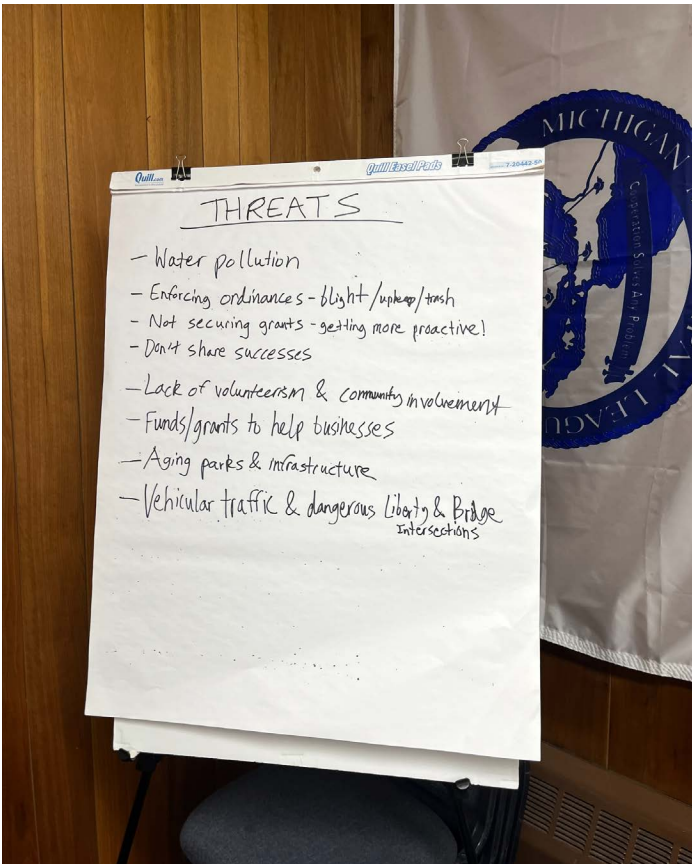 Quill.com
Quill Easel Pads
7-20442-SP
THREATS
- Water pollution
- Enforcing ordinances - blight/upkeep/trash
- Not securing grants - getting more proactive!
- Don't share successes
- Lack of volunteerism & community involvement
- Funds/grants to help businesses
- Aging parks & infrastructure
- Vehicular traffic & dangerous Liberty & Bridge
Intersections
MICHIGAN
Cooperation Solves Any Problem
LEAGU